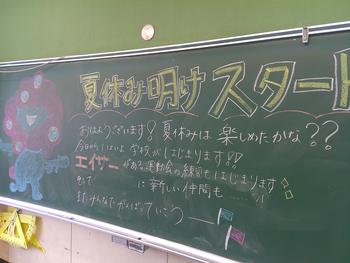 夏休み明けスタート
おはようございます！夏休みは楽しめたかな??
今日からいよいよ学校がはじまります!!
エイサーがある運動会の練習もはじまります
そして　　　に新しい仲間も……
またみんなでがんばっていこう